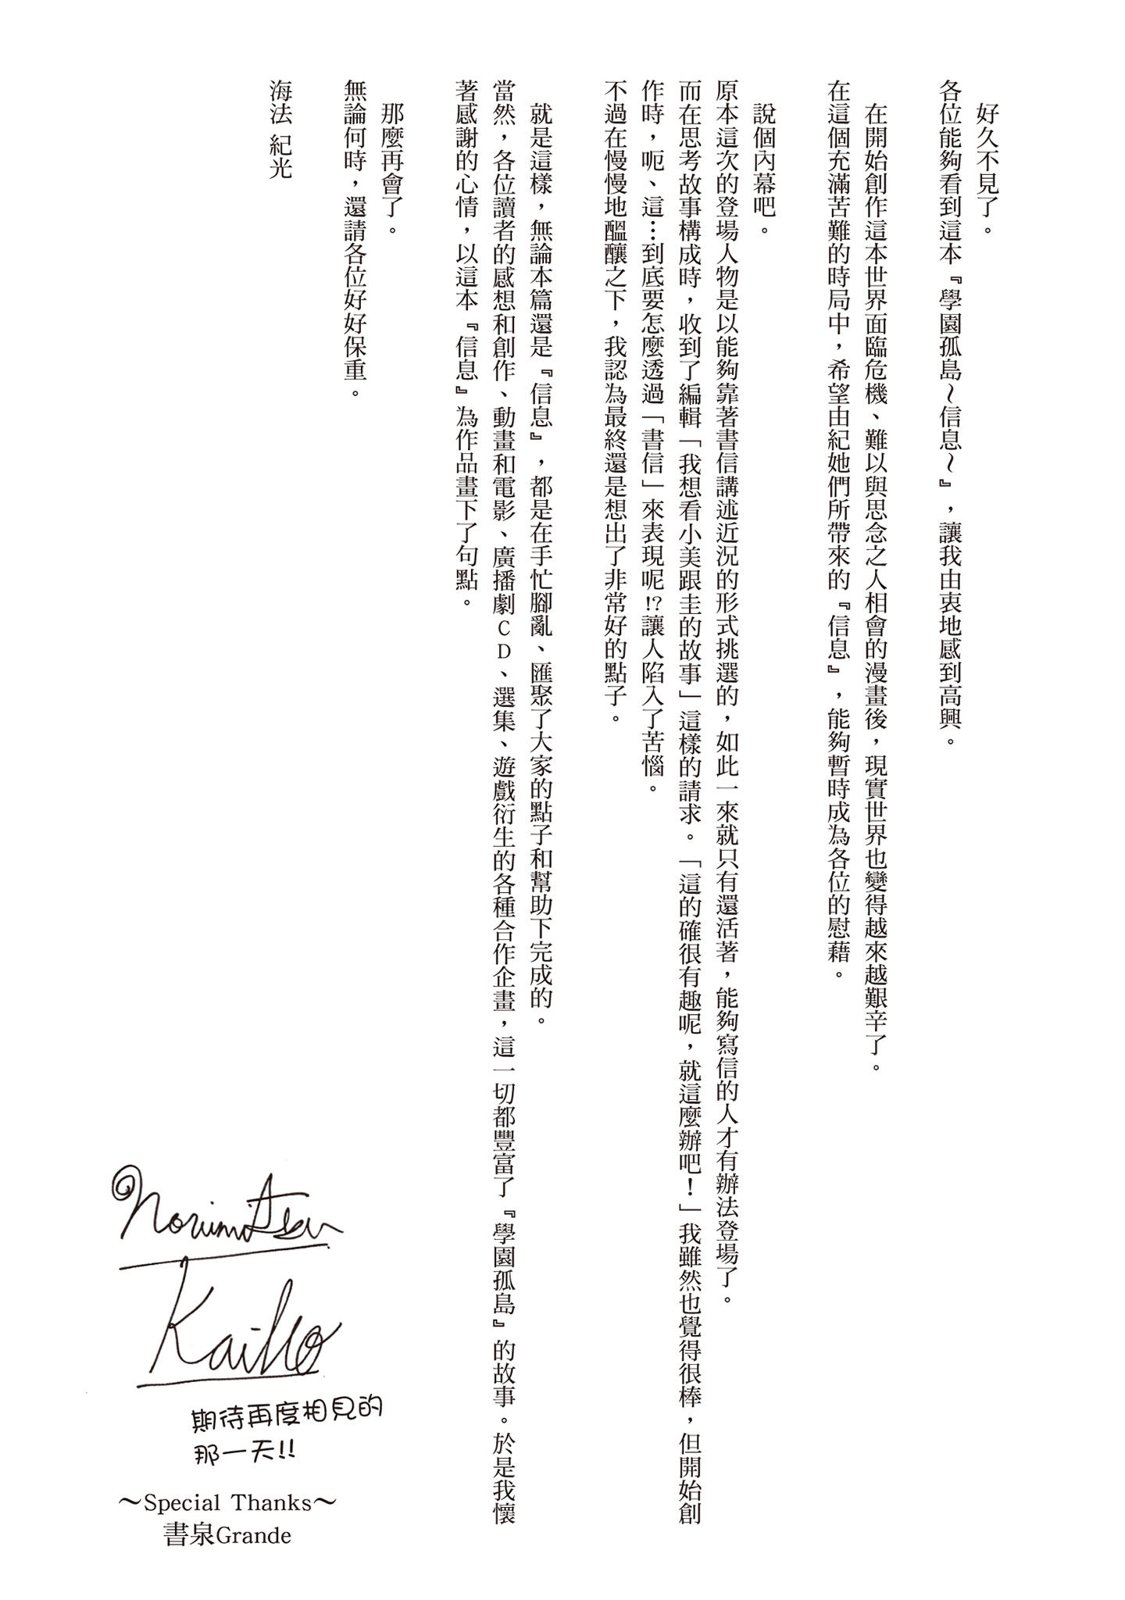 好久不見了。
各位能夠看到這本『學園孤島~信息~』，讓我由衷地感到高興。
在開始創作這本世界面臨危機、難以與思念之人相會的漫畫後，現實世界也變得越來越艱辛了。
在這個充滿苦難的時局中，希望由紀她們所帶來的『信息』，能夠暫時成為各位的慰藉。
說個內幕吧。
原本這次的登場人物是以能夠靠著書信講述近況的形式挑選的，如此一來就只有還活著，能夠寫信的人才有辦法登場了。
而在思考故事構成時，收到了編輯「我想看小美跟圭的故事」這樣的請求。「這的確很有趣呢，就這麼辦吧！」我雖然也覺得很棒，但開始創
作時，呃、這…到底要怎麼透過「書信」來表現呢!?讓人陷入了苦惱。
不過在慢慢地醞釀之下，我認為最終還是想出了非常好的點子。
就是這樣，無論本篇還是『信息』，都是在手忙腳亂、匯聚了大家的點子和幫助下完成的。
當然，各位讀者的感想和創作、動畫和電影、廣播劇CD、選集、遊戲衍生的各種合作企畫，這一切都豐富了『學園孤島』的故事。於是我懷
著感謝的心情，以這本『信息』為作品畫下了句點。
那麼再會了。
無論何時，還請各位好好保重。
海法 紀光
Norimitsu
Kaiho
期待再度相見的
那一天!!
～Special Thanks～
書泉Grande